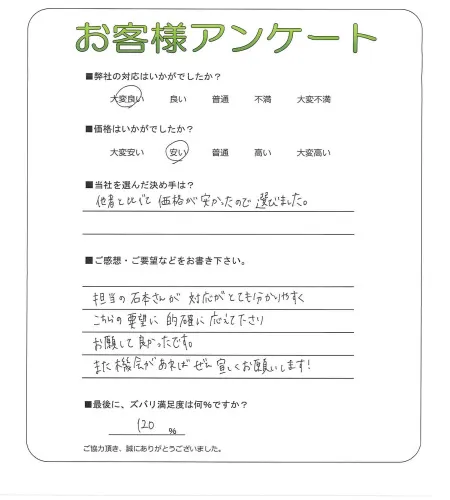 お客様アンケート
■弊社の対応はいかがでしたか？
大変良い 良い 普通 不満 大変不満
■価格はいかがでしたか？
大変安い 安い 普通 高い 大変高い
■当社を選んだ決め手は？
他者と比べて 価格が 安かったので 選びました。
■ご感想・ご要望などをお書き下さい。
担当の石本さんが 対応がとても分かりやすく
こちらの要望に 的確に 応えて下さり
お願いして良かったです。
また機会があれば ぜひ 宜しくお願いします!
■最後に、ズバリ満足度は何%ですか？
120 %
ご協力頂き、誠にありがとうございました。